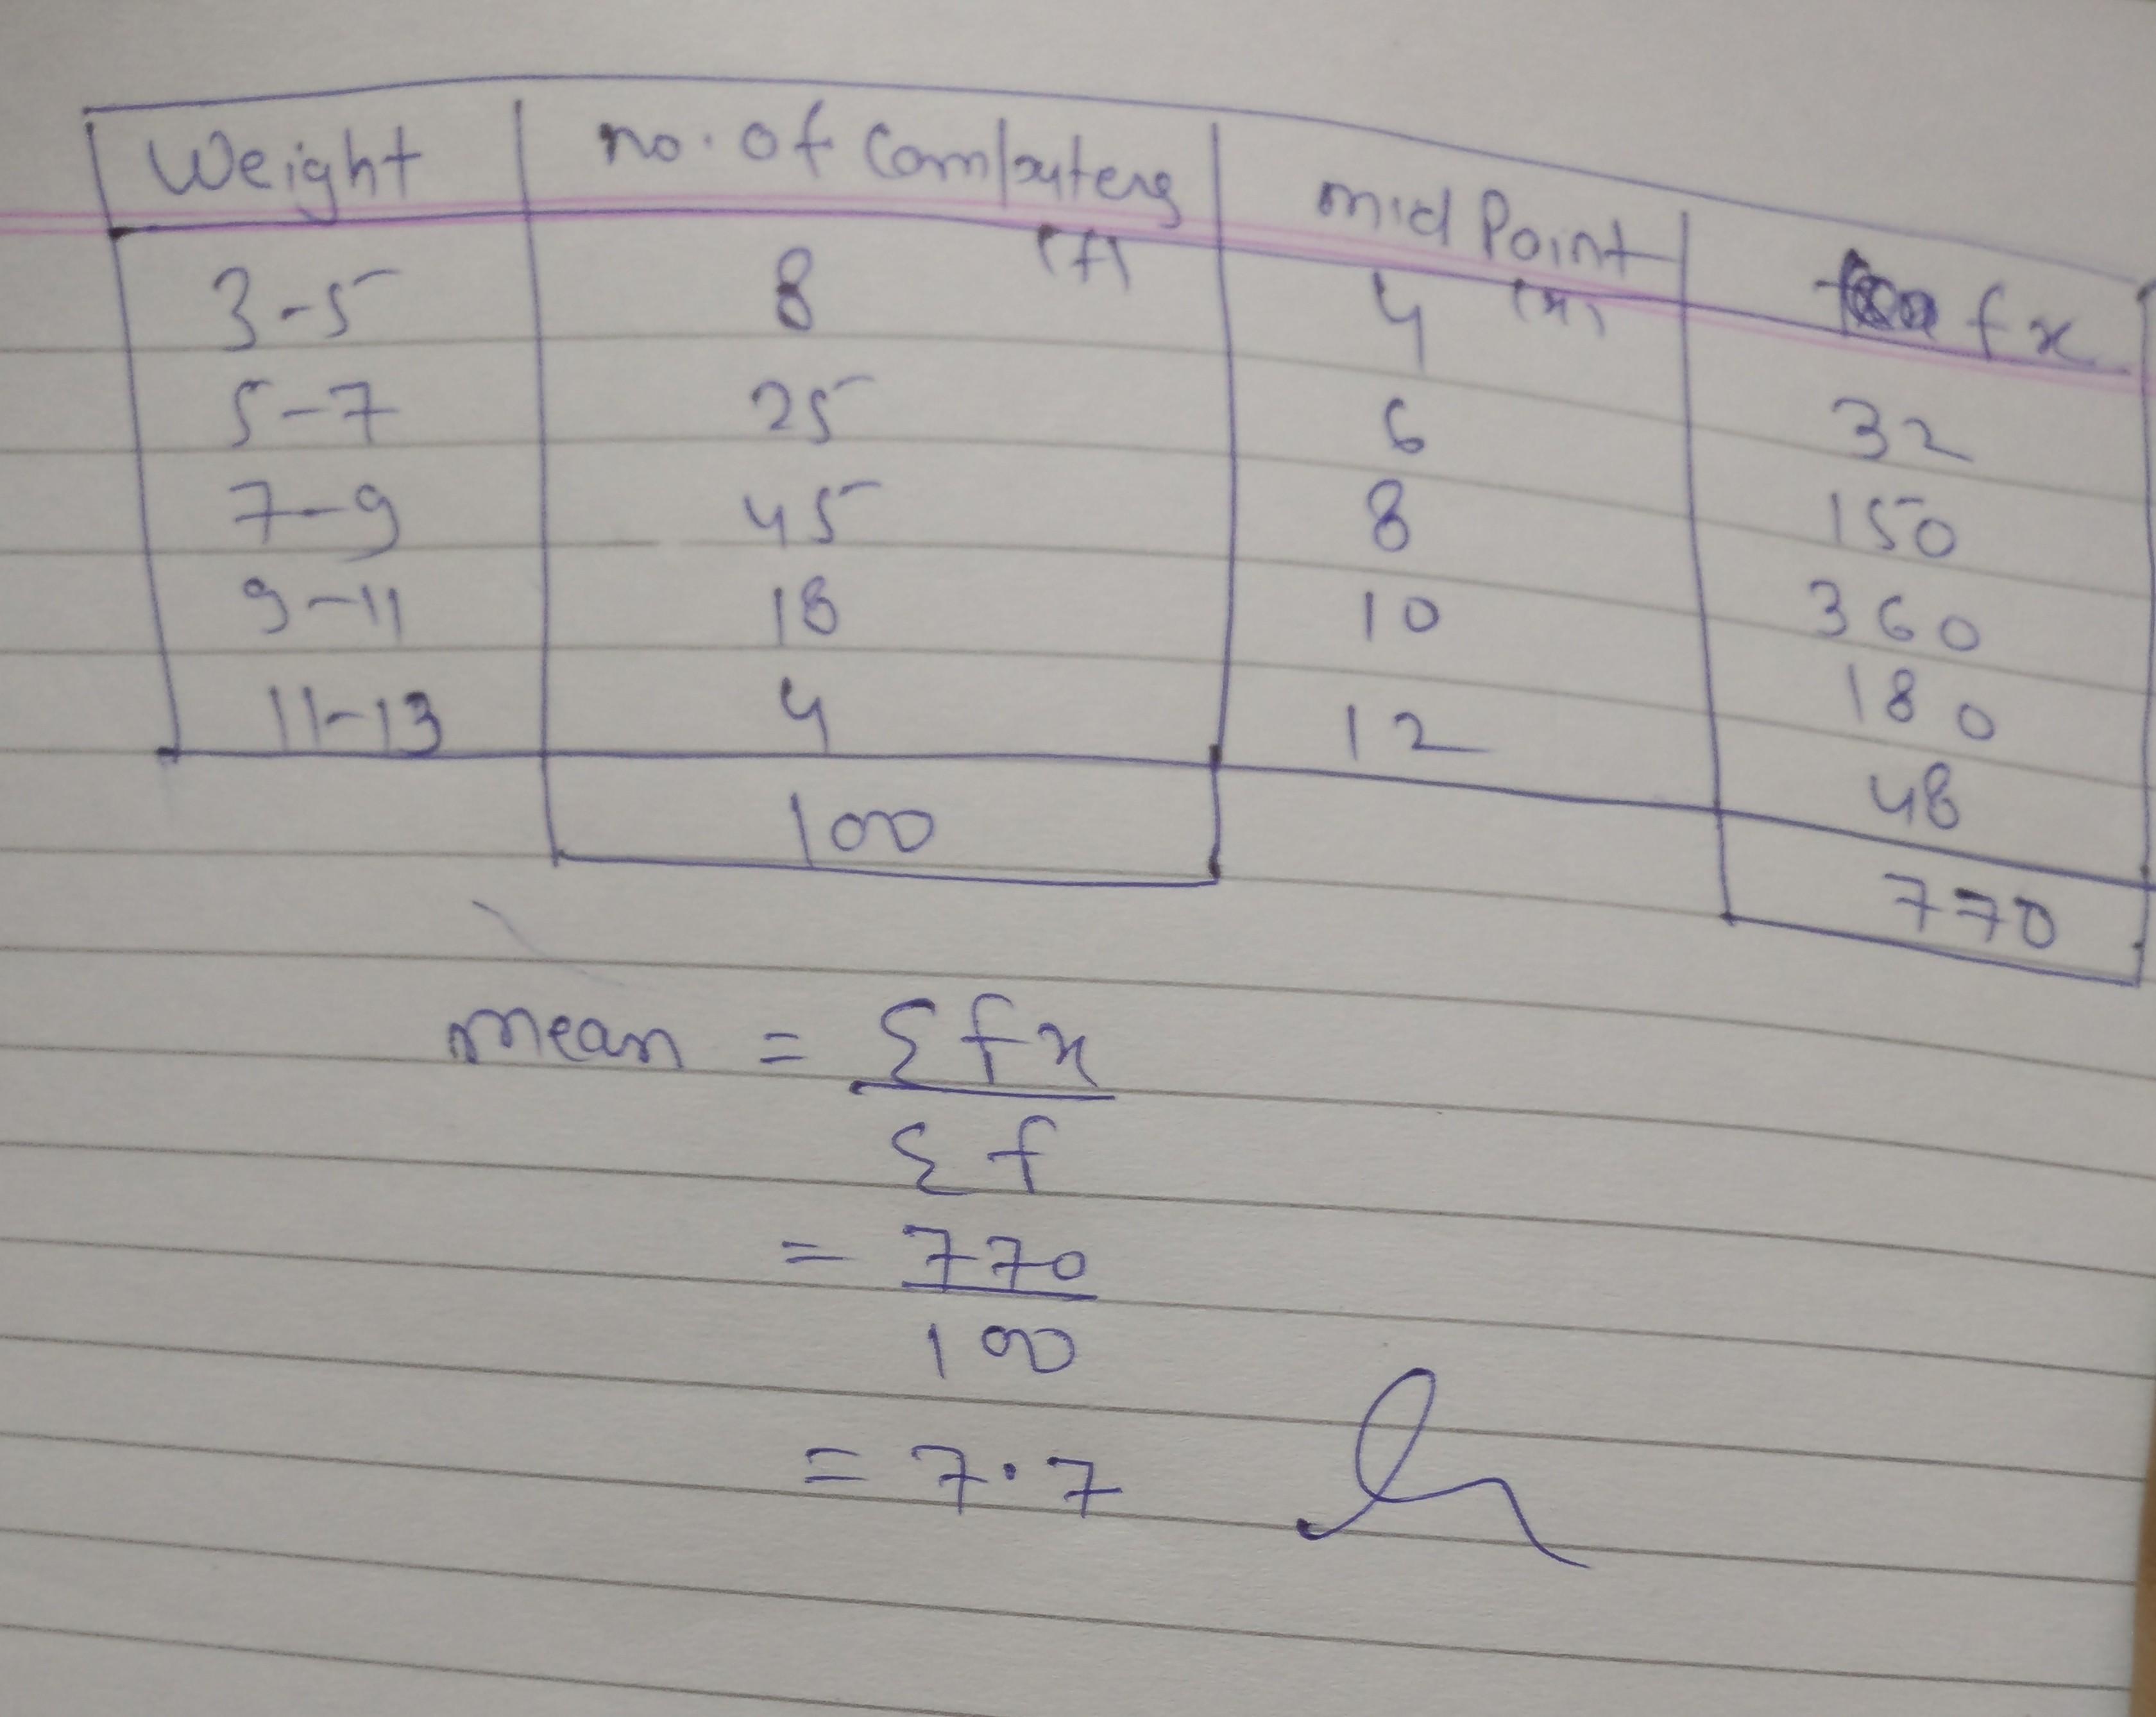 Weight no. of Computers (f) mid Point (x) fx
3-5 8 4 32
5-7 25 6 150
7-9 45 8 360
9-11 18 10 180
11-13 4 12 48
100 770
mean = Σfx
Σf
= 770
100
= 7.7